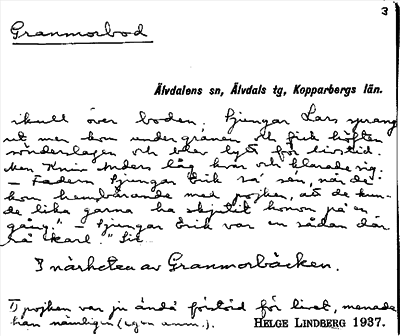 3
Granmorbod
Älvdalens sn, Älvdals tg, Kopparbergs län.
ikull över boden. Ljungar Lars sprang
ut men kom under granen och fick höften
sönderslagen och blev lytt för livstid.
Men Knis Anders låg kvar och klarade sig.
– Fadern Ljungar Erik sa' sén, när de
kom hembärande med pojken, att de kun-
de lika garna ha skjutit honom på en
gång.¹⁾ – Ljungar Erik var en sådan där
rå karl."
I närheten av Granmorbäcken.
1) pojken var ju ändå förstörd för livet, menade
han nämligen (egen anm.).
HELGE LINDBERG 1937.